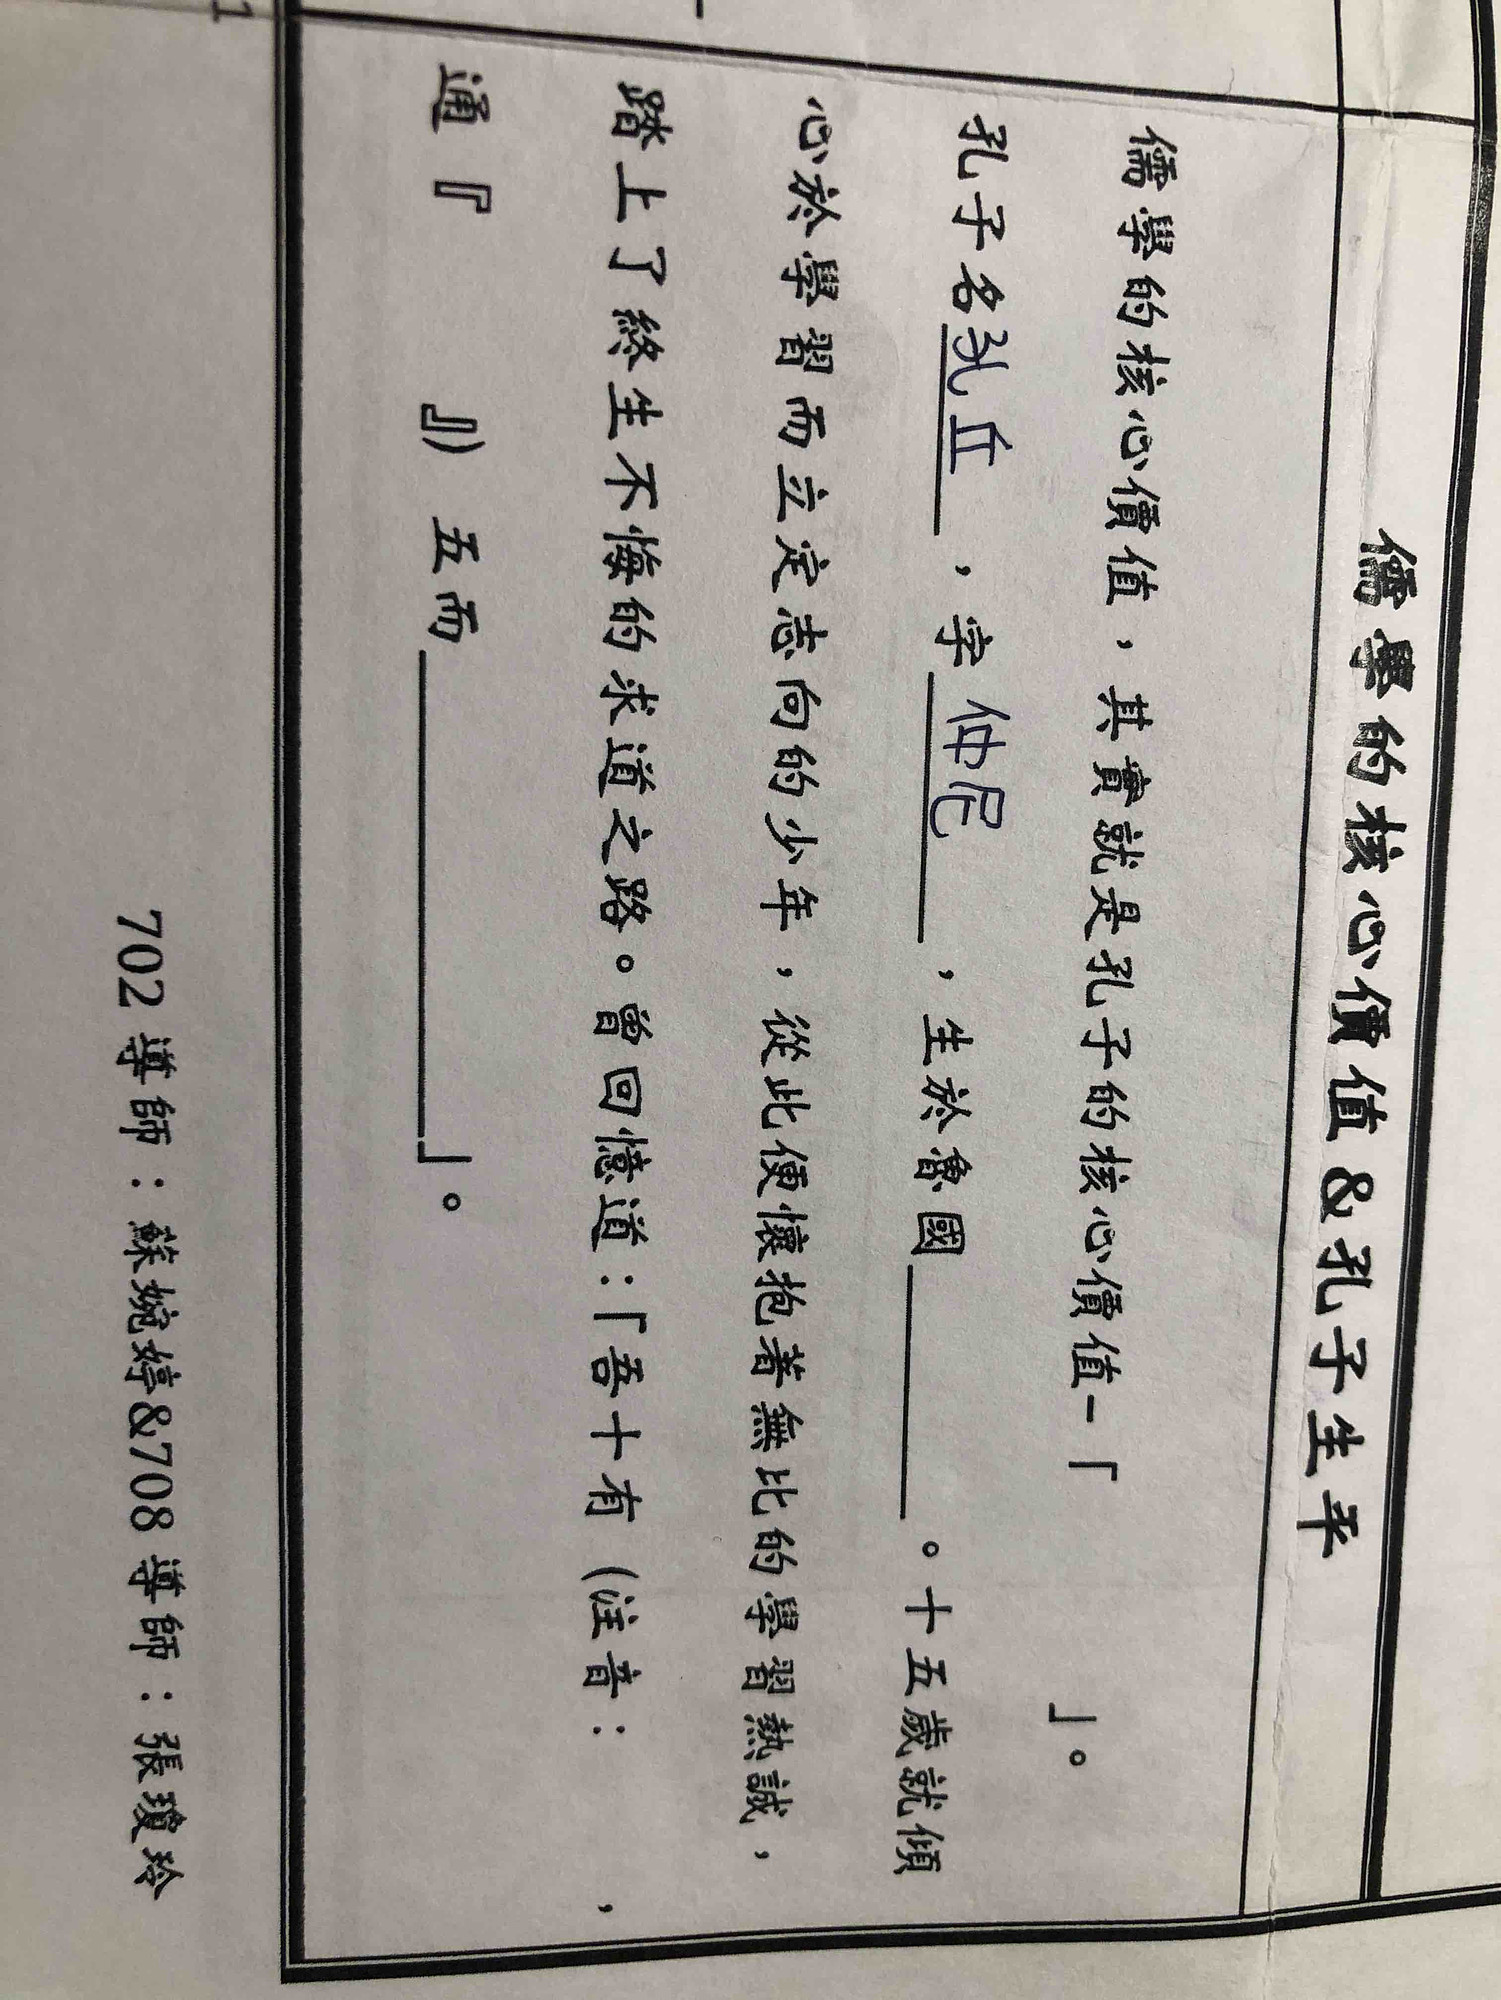 儒學的核心價值&孔子生平
儒學的核心價值，其實就是孔子的核心價值-「 」。
孔子名孔丘，字仲尼，生於魯國 。十五歲就傾
心於學習而立定志向的少年，從此便懷抱著無比的學習熱誠，
踏上了終生不悔的求道之路。曾回憶道：「吾十有（注音： ，
通『 』）五而 」。
702 導師：蘇婉婷&708 導師：張瓊玲
1